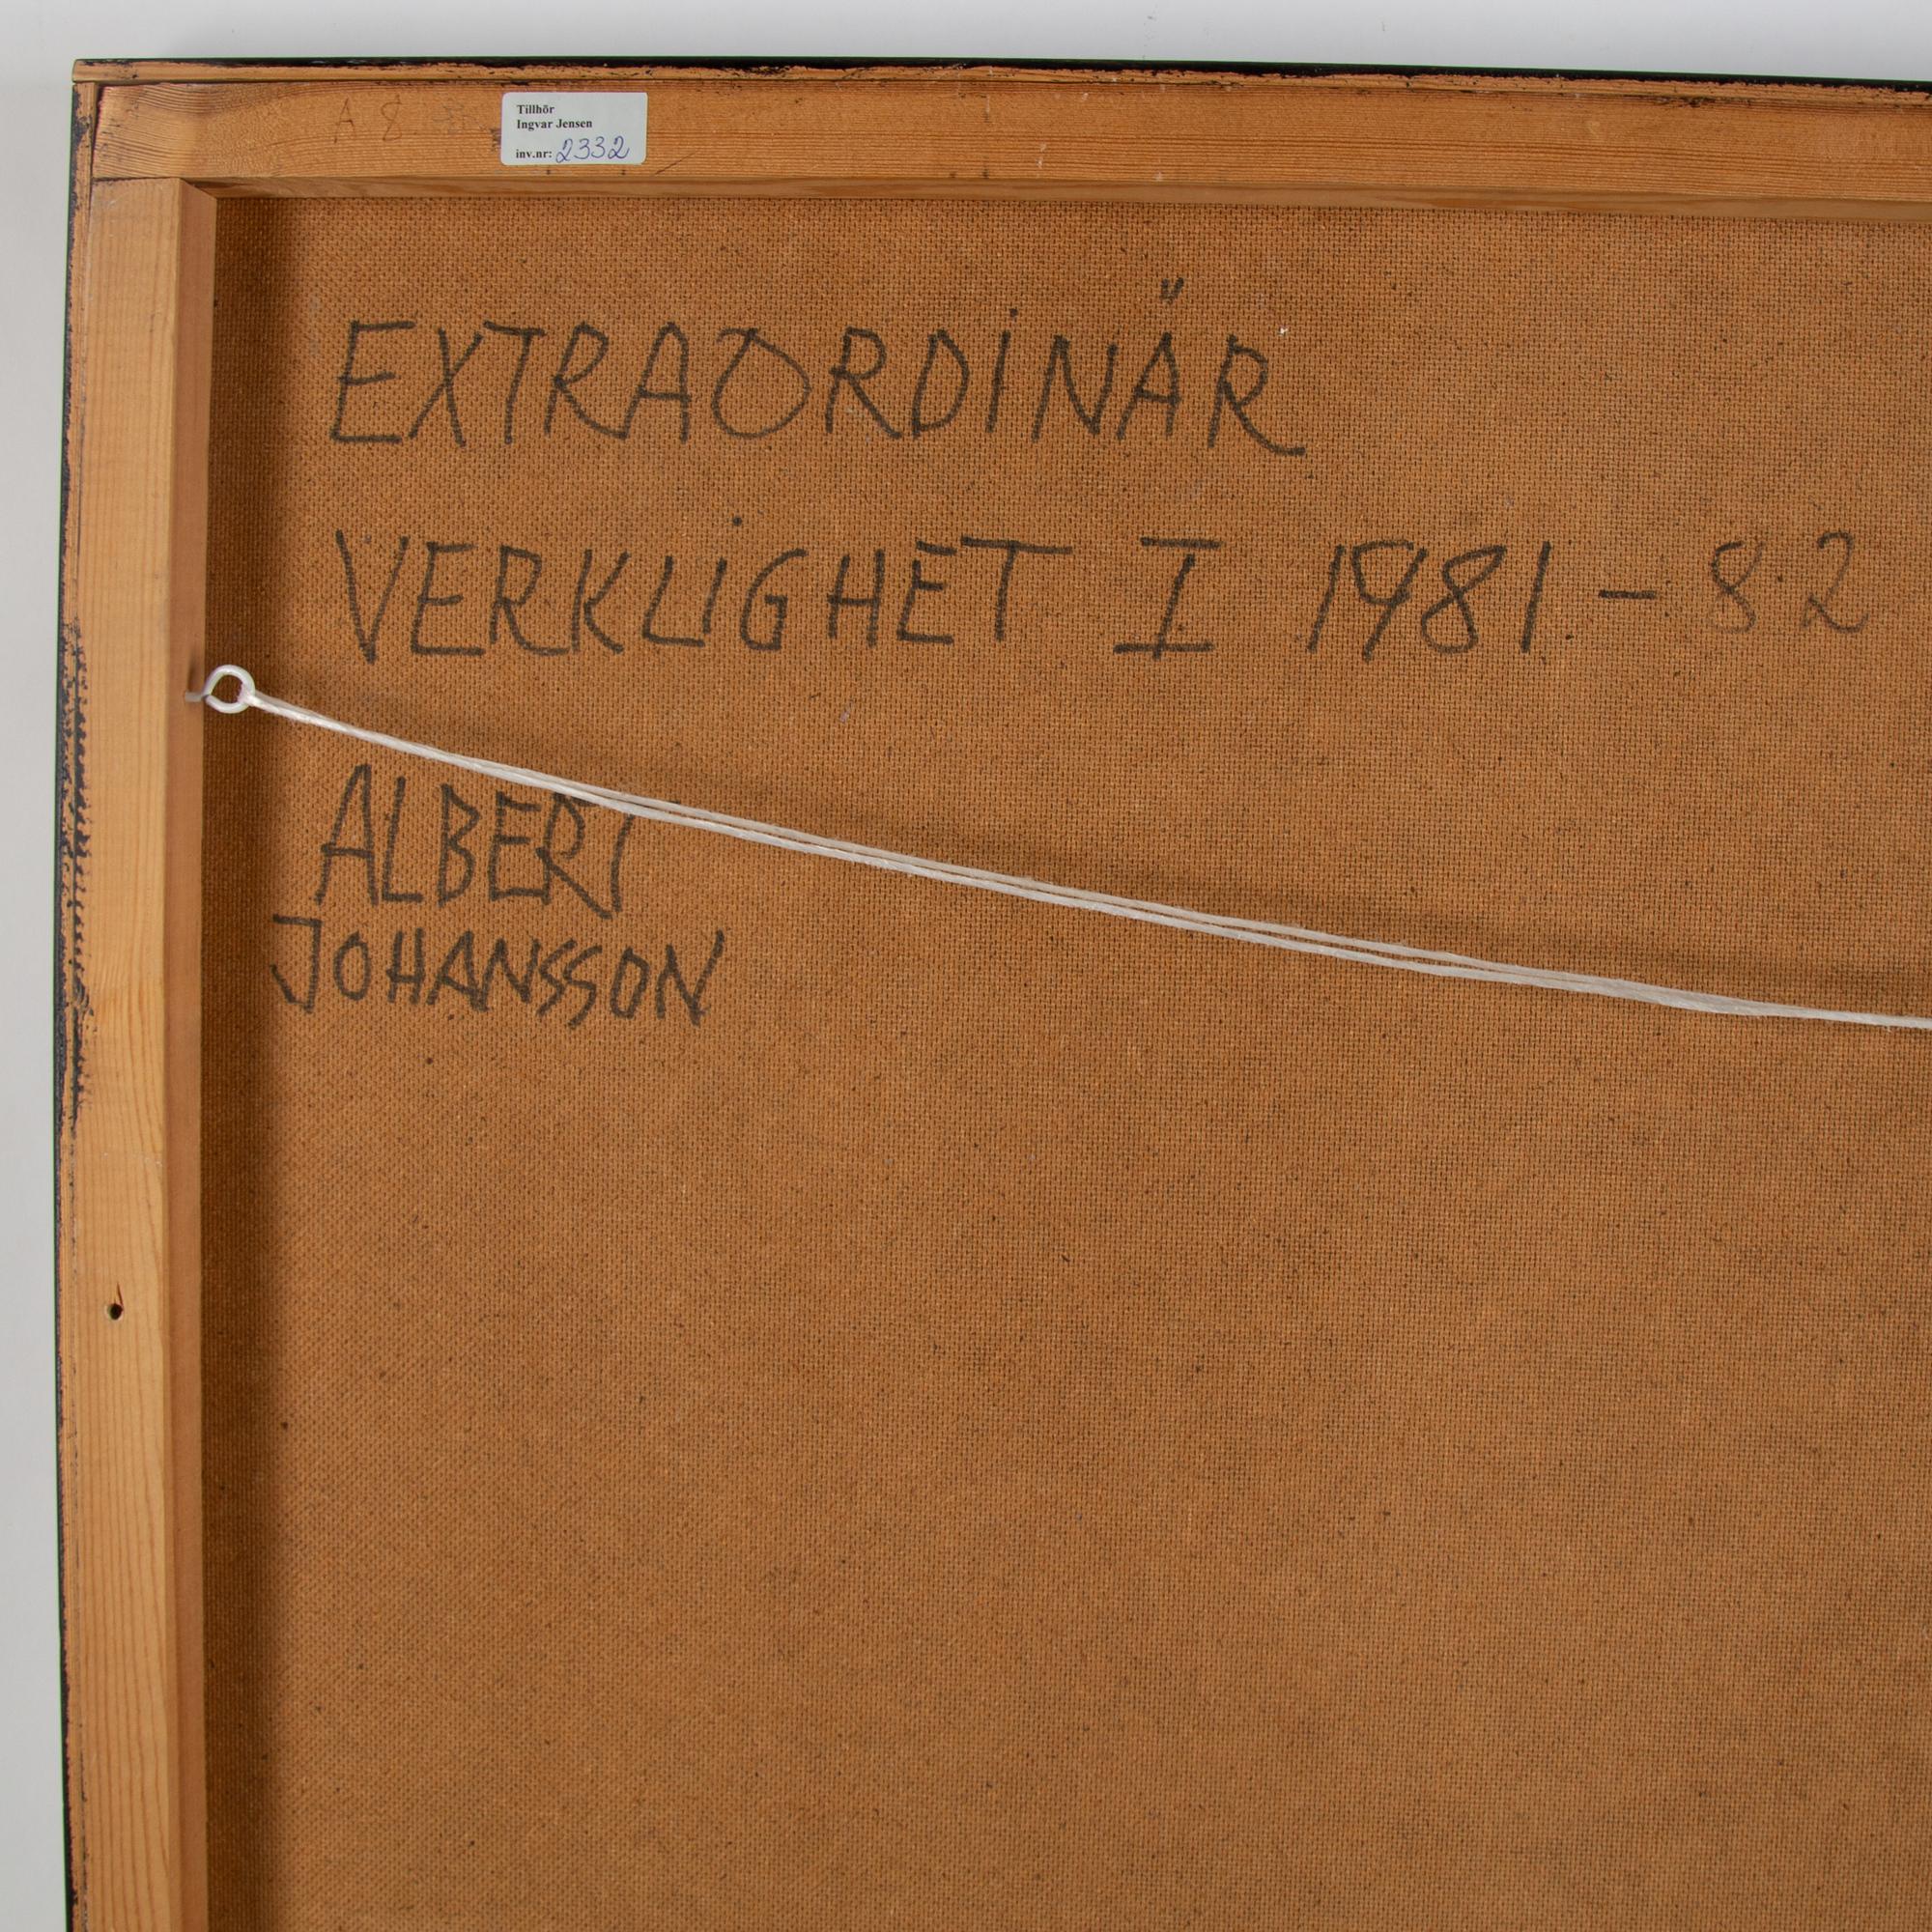 A 8
Tillhör
Ingvar Jensen
inv.nr: 2332
EXTRAORDINÄR
VERKLIGHET I 1981-82
ALBERT
JOHANSSON